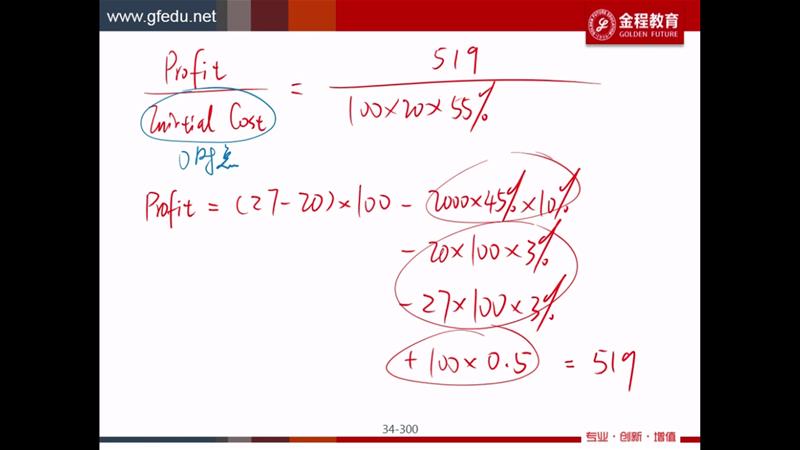 www.gfedu.net
金程教育
GOLDEN FUTURE
Profit / Initial Cost = 519 / 100×20×55%
0时点
Profit = (27-20)×100 - 2000×45%×10%
- 20×100×3%
- 27×100×3%
+ 100×0.5 = 519
34-300
专业·创新·增值